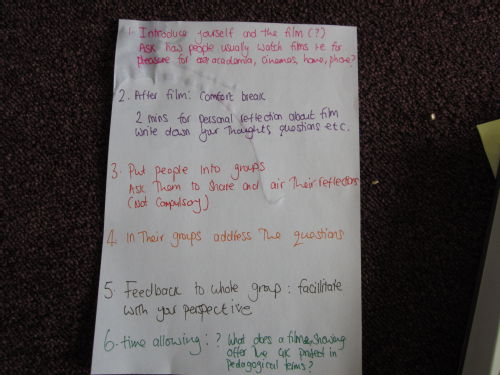 1. Introduce yourself and the film (?)
ASK how people usually watch films i.e for
pleasure for academia, cinemas, home, phone?
2. After film: Comfort break
2 mins for personal reflection about film
write down your thoughts questions etc.
3. Put people into groups
Ask Them to share and air their reflections
(Not Compulsory)
4. In Their groups address The questions
5. Feedback to whole group: facilitate
with your perspective
6. time allowing: ? What does a film showing
offer the project in
pedagogical terms?